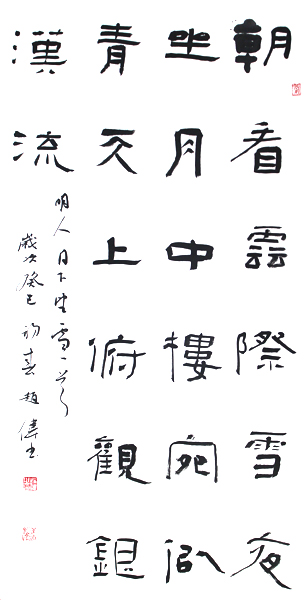 朝看雲際雪夜
坐月中樓宛似
青天上俯觀銀
漢流
明人月下雪一首
歲次癸巳初春趙偉書